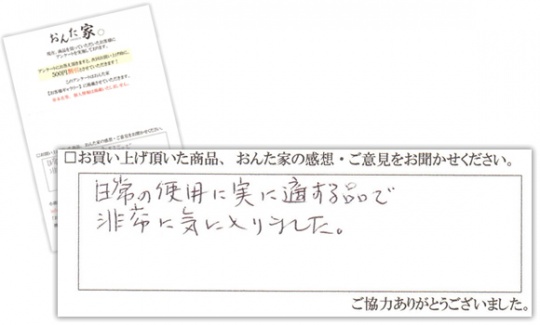 おんた家
500円割引とさせていただきます!
□お買い上げ頂いた商品、おんた家の感想・ご意見をお聞かせください。
日常の使用に実に適する品で
非常に気に入りました。
ご協力ありがとうございました。